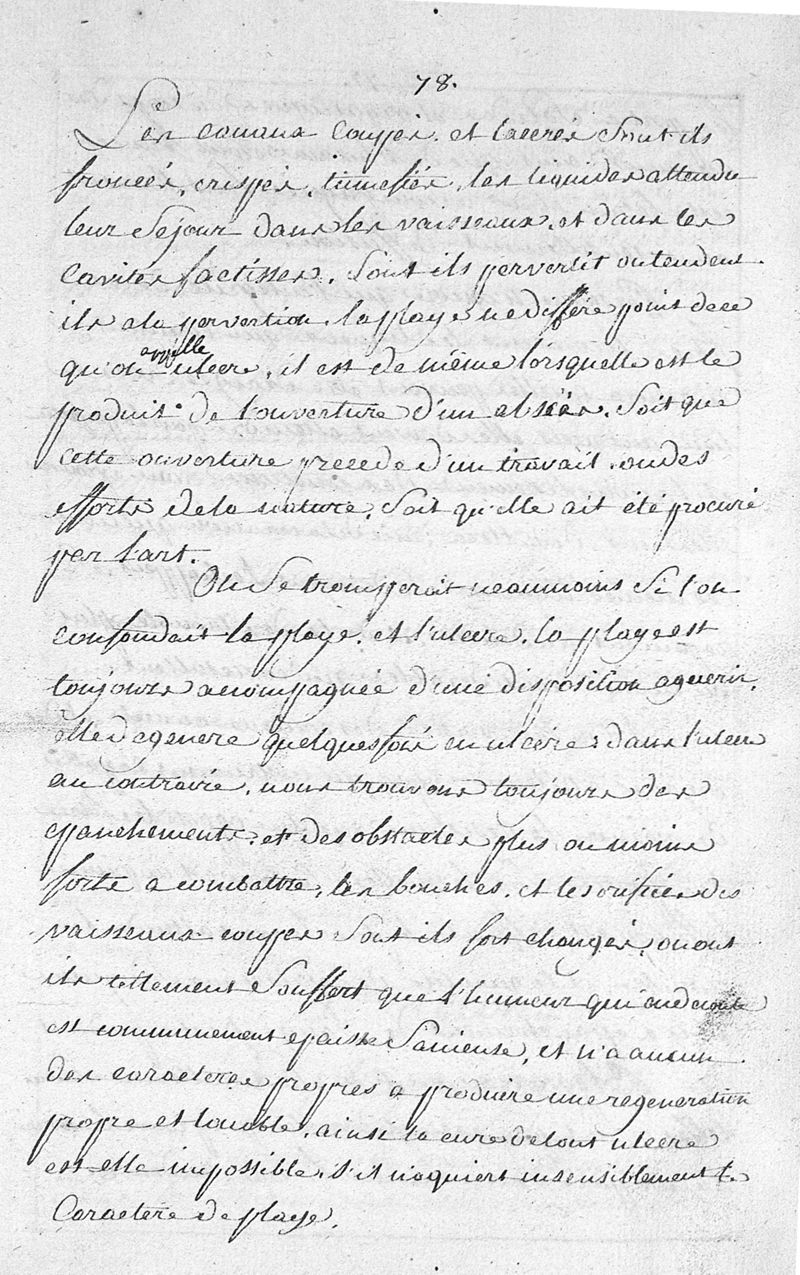 78.
Les canaux coupés. et lacerés sont ils
froncés, crispés, tumefiés, les liquides attendu
leur sejour dans les vaisseaux, et dans les
cavites factisses, sont ils pervertit ou tendent
ils a la pervertion, la playe ne differe point de ce
qu'on appelle ulcere, il est de même lorsquelle est le
produit de l'ouverture d'un absces. Soit que
cette ouverture precede d'un travail, ou des
efforts de la nature, soit qu'elle ait été procuré
par l'art.
On se tromperait neaumoins si l'on
confondait la playe, et l'ulcere, la playe est
toujours acompagnée d'une disposition a guerir,
elle degenere quelquesfois en ulcere: dans l'ulcere
au contraire, nous trouvons toujours des
epanchements, et des obstacles plus ou moins
forts a combattre, les bouches, et les orifices des
vaisseaux coupés sont ils fort changés, ou ont
ils tellement souffert que l'humeur qui en decoule
est communement epaisse sanieuse, et n'a aucun
des caracteres propres a produire une regeneration
propre et louable, ainsi la cure de tout ulcere
est elle impossible, s'il n'aquiert insensiblement le
Caractere de playe.